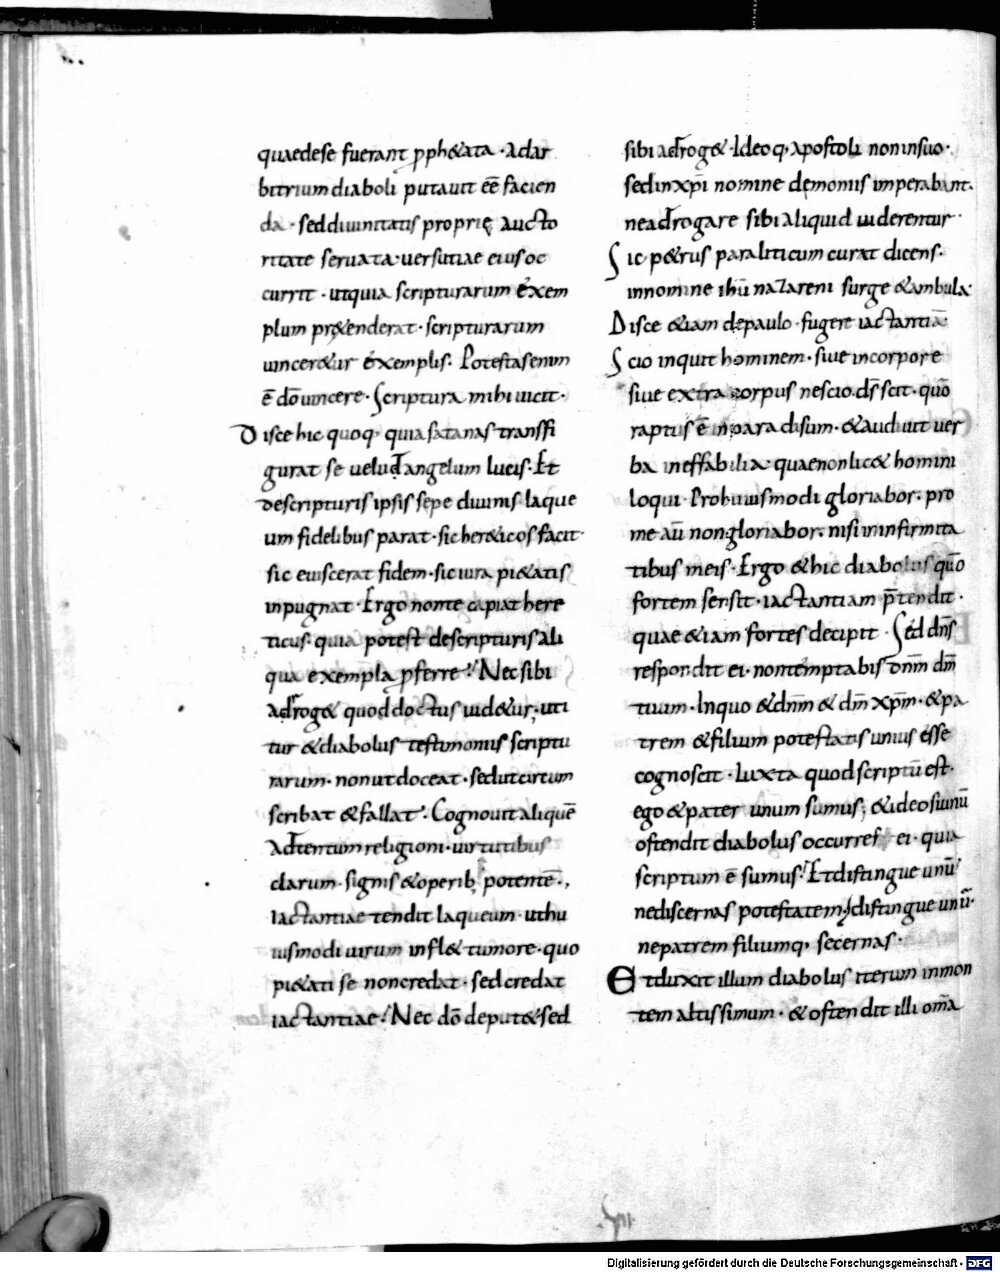 quaedese fuerant pph&ata · Adar
bitrium diaboli putauit eē facien
da · sed diuinitatis proprię aucto
ritate seruata · uersutiae eius oc
currit · utquia scripturarum exem
plum pr&enderat · scripturarum
uincer&ur exemplis. Potestas enim
ē dō uincere · Scriptura mihi uicit ·
Disce hic quoq· quia satanas transfi
gurat se uelud angelum lucis · Et
descripturis ipsis sepe diuinis laque
um fidelibus parat · sic her&icos facit ·
sic euiscerat fidem · sic iura pi&atis
inpugnat · Ergo nonte capiat here
ticus · quia potest descripturis ali
qua exempla pferre! Nec sibi
adrog& quod doctus uid&ur; uti
tur &diabolus testimoniis scriptu
rarum · non ut doceat · sed ut circum
scribat &fallat · Cognouit aliquē
adtentum religioni · uirtutibus
clarum · signis &operib; potentē.,
iactantiae tendit laqueum · ut hu
iusmodi uirum infl& tumore · quo
pi&ati se non credat · sed credat
iactantiae! Nec dō deput& sed
sibi adrog& · Ideoq· apostoli non insuo ·
sed inxpi nomine demoniis imperabant ·
ne adrogare sibi aliquid uiderentur ·
Sic p&rus paraliticum curat dicens ·
innomine ihū nazareni surge &ambula ·
Disce &iam depaulo · fugere iactantia ·
Scio inquit hominem · siue incorpore
siue extra corpus nescio · dš scit · quō
raptus ē inparadisum · &audiuit uer
ba ineffabilia · quae non lic& homini
loqui · Prohuiusmodi gloriabor · pro
me aū non gloriabor · nisi in infirmita
tibus meis · Ergo &hic diabolus quō
fortem sensit · iactantiam p̄tendit ·
quae &iam fortes decipit · Sed dn̄s
respondit ei · non temptabis dn̄m dm̄
tuum · Inquo &dn̄m & dm̄ xpm̄ · &pa
trem &filium potestatis unius esse
cognoscit · Iuxta quod scriptū est ·
ego &pater unum sumus; &ideo siunū
ostendit diabolus occurret ei · quia
scriptum ē sumus! Et distingue unū
ne discernas potestatem! distingue unū ·
ne patrem filiumq; secernas ·
Et duxit illum diabolus iterum inmon
tem altissimum · &ostendit illi omā
Digitalisierung gefördert durch die Deutsche Forschungsgemeinschaft - DFG